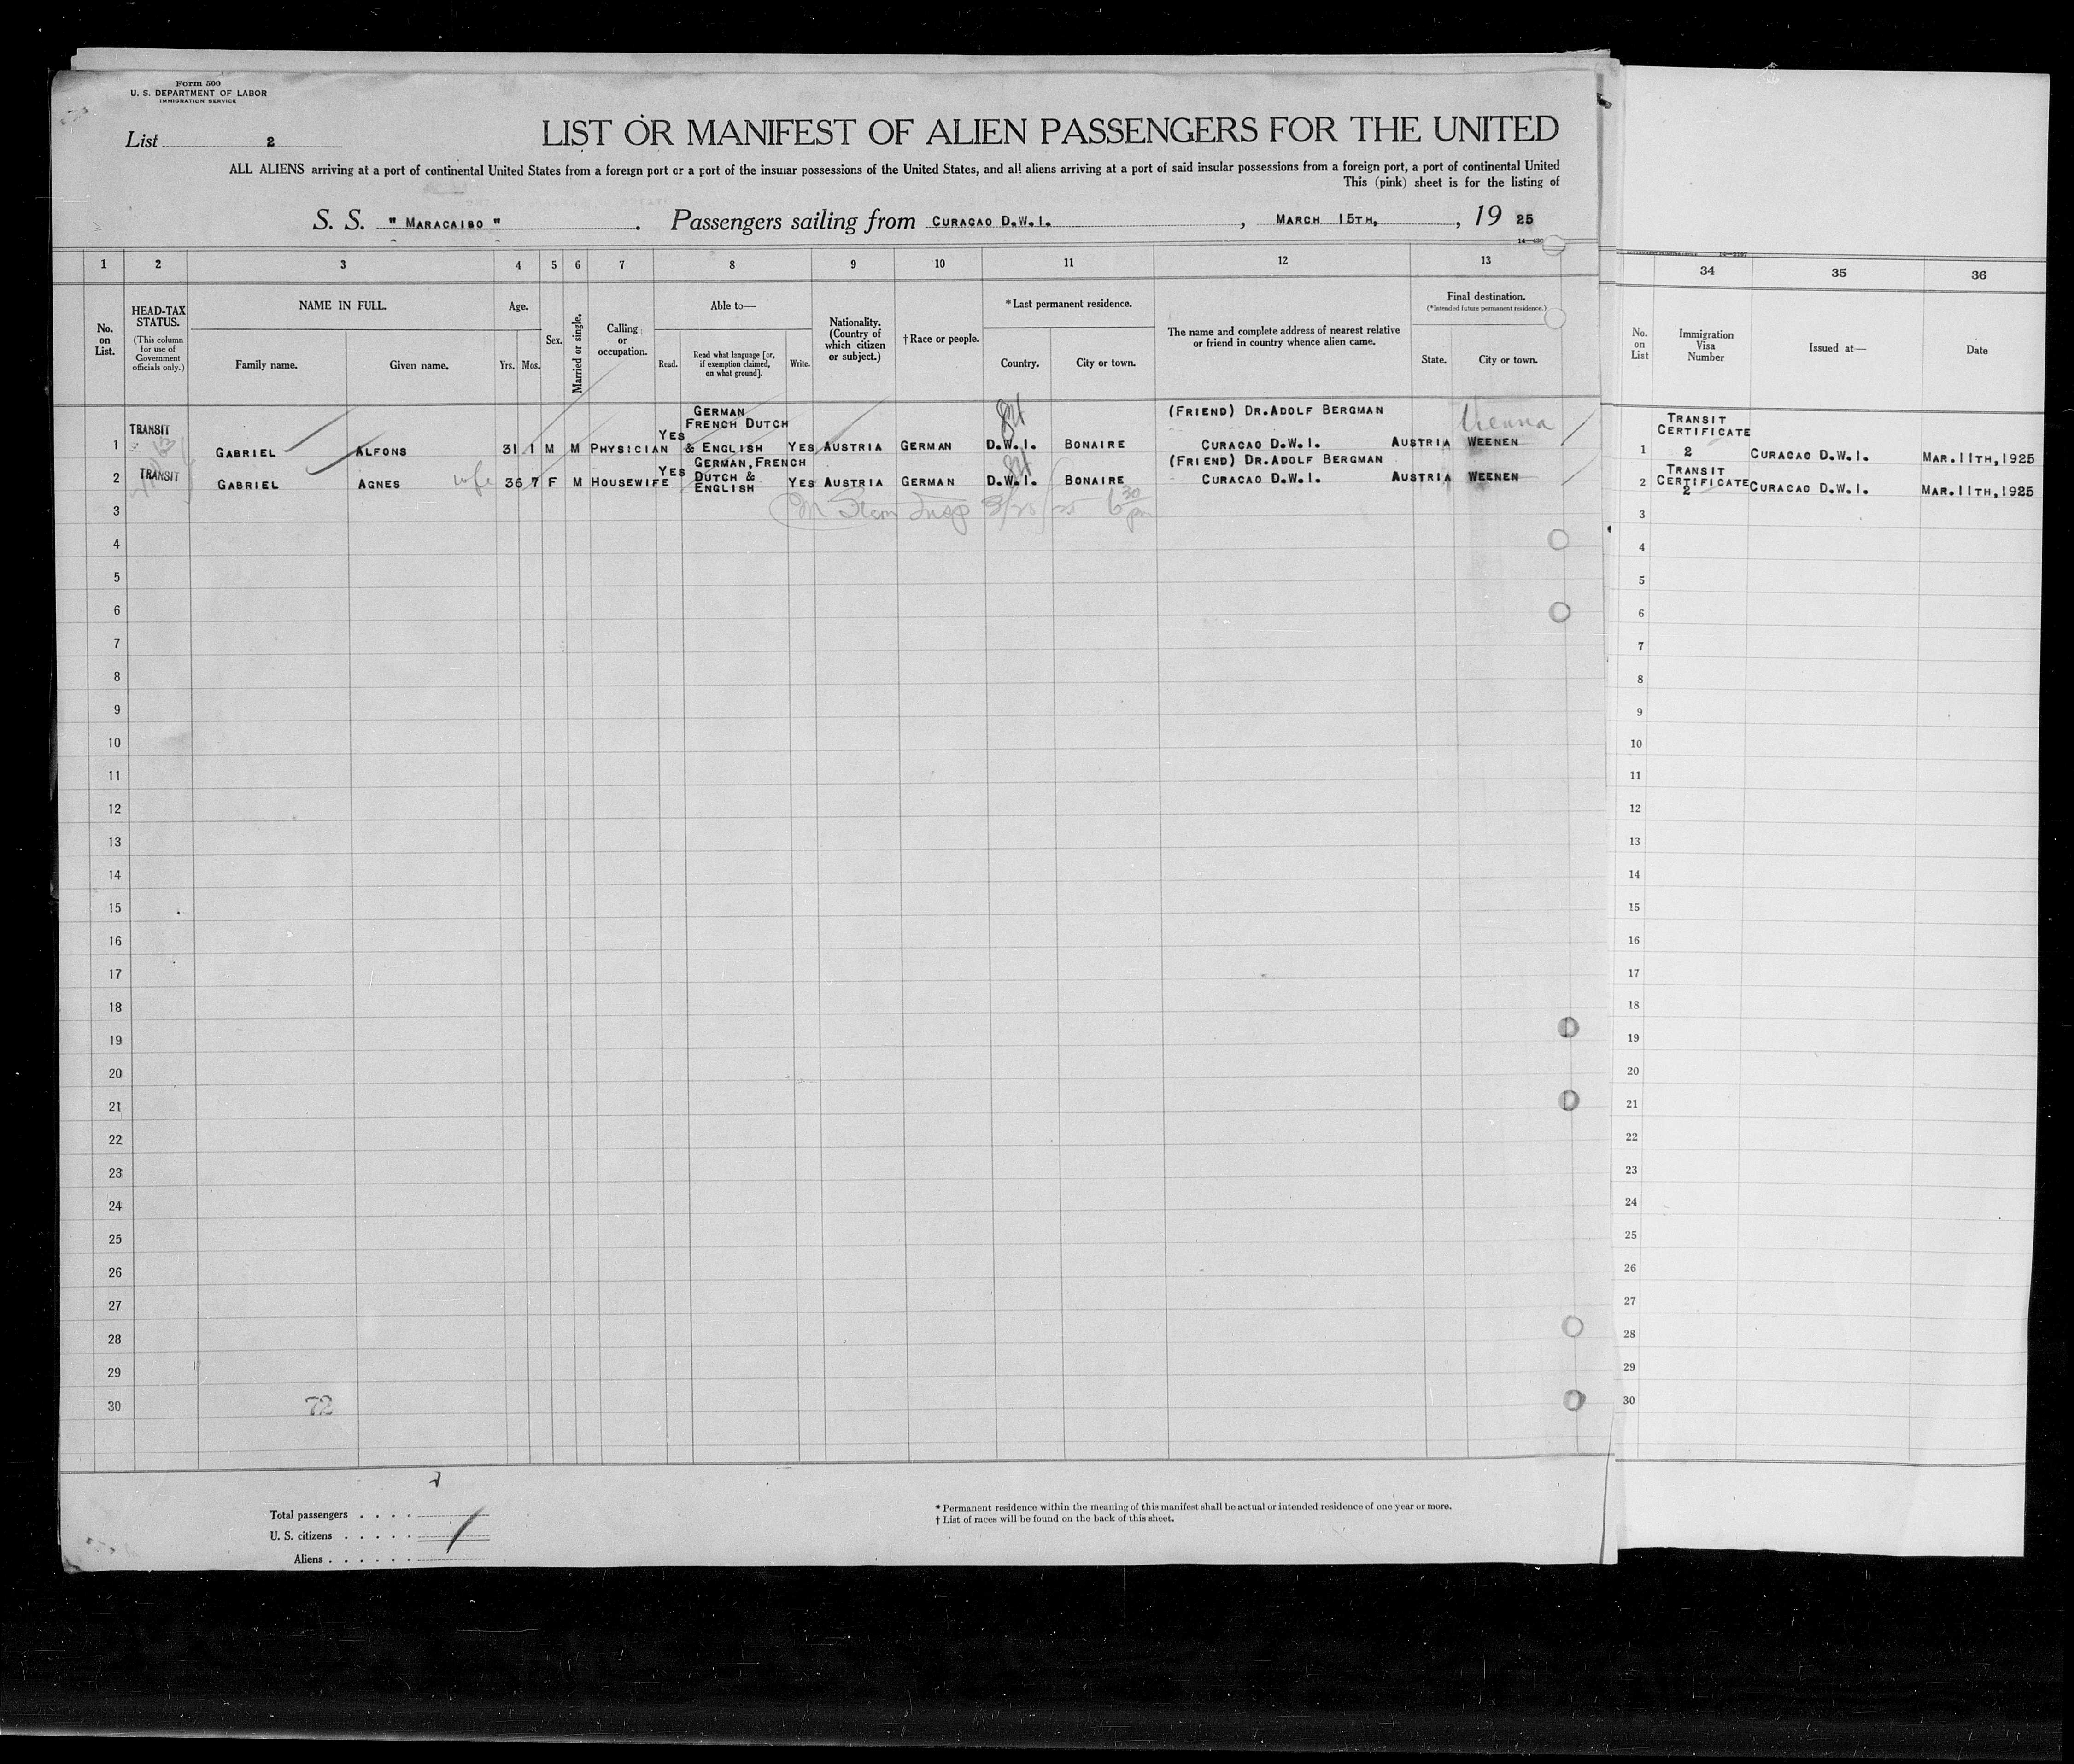 Form 500
U. S. DEPARTMENT OF LABOR
IMMIGRATION SERVICE
List 2
LIST OR MANIFEST OF ALIEN PASSENGERS FOR THE UNITED
ALL ALIENS arriving at a port of continental United States from a foreign port or a port of the insular possessions of the United States, and all aliens arriving at a port of said insular possessions from a foreign port, a port of continental United
This (pink) sheet is for the listing of
S. S. " MARACAIBO " . Passengers sailing from CURACAO D.W.I. , MARCH 15TH, , 19 25
1 2 3 4 5 6 7 8 9 10 11 12 13 34 35 36
No. on List.
HEAD-TAX STATUS.
(This column for use of Government officials only.)
NAME IN FULL.
Family name. Given name.
Age.
Yrs. Mos.
Sex.
Married or single.
Calling or occupation.
Able to—
Read. Read what language [or, if exemption claimed, on what ground]. Write.
Nationality. (Country of which citizen or subject.)
† Race or people.
* Last permanent residence.
Country. City or town.
The name and complete address of nearest relative or friend in country whence alien came.
Final destination.
(* Intended future permanent residence.)
State. City or town.
No. on List
Immigration Visa Number
Issued at—
Date
1 TRANSIT GABRIEL ALFONS 31 1 M M PHYSICIAN YES GERMAN FRENCH DUTCH & ENGLISH YES AUSTRIA GERMAN D.W.I. BONAIRE (FRIEND) DR. ADOLF BERGMAN CURACAO D.W.I. AUSTRIA WEENEN Vienna
1 TRANSIT CERTIFICATE 2 CURACAO D.W.I. MAR. 11TH, 1925
2 TRANSIT GABRIEL AGNES wife 36 7 F M HOUSEWIFE YES GERMAN, FRENCH DUTCH & ENGLISH YES AUSTRIA GERMAN D.W.I. BONAIRE (FRIEND) DR. ADOLF BERGMAN CURACAO D.W.I. AUSTRIA WEENEN
2 TRANSIT CERTIFICATE 2 CURACAO D.W.I. MAR. 11TH, 1925
3 3
4 4
5 5
6 6
7 7
8 8
9 9
10 10
11 11
12 12
13 13
14 14
15 15
16 16
17 17
18 18
19 19
20 20
21 21
22 22
23 23
24 24
25 25
26 26
27 27
28 28
29 29
30 72 30
Total passengers
U. S. citizens
Aliens
* Permanent residence within the meaning of this manifest shall be actual or intended residence of one year or more.
† List of races will be found on the back of this sheet.